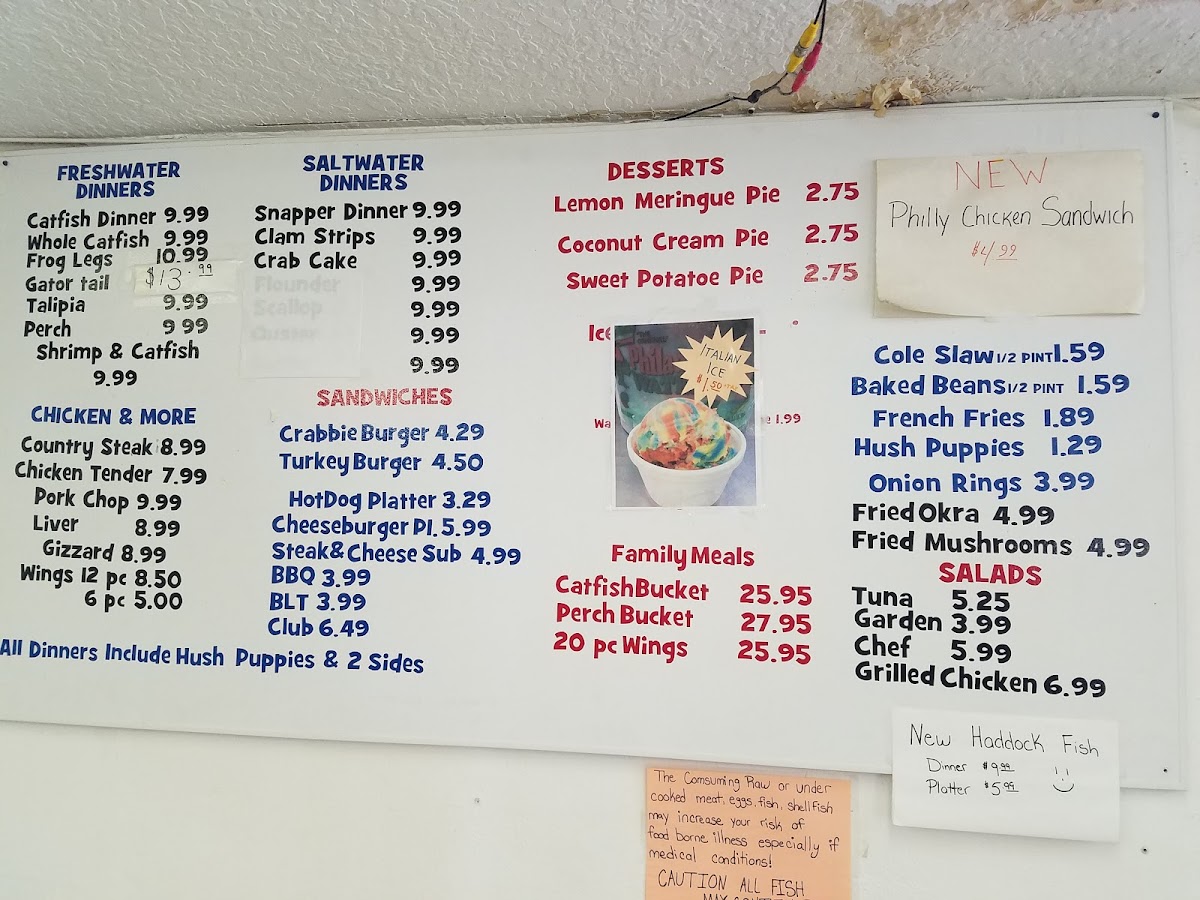 FRESHWATER
DINNERS
Catfish Dinner 9.99
Whole Catfish 9.99
Frog Legs 10.99
Gator tail $13.99
Talipia 9.99
Perch 9 99
Shrimp & Catfish
9.99
CHICKEN & MORE
Country Steak 8.99
Chicken Tender 7.99
Pork Chop 9.99
Liver 8.99
Gizzard 8.99
Wings 12 pc 8.50
6 pc 5.00
All Dinners Include Hush Puppies & 2 Sides
SALTWATER
DINNERS
Snapper Dinner 9.99
Clam Strips 9.99
Crab Cake 9.99
Flounder 9.99
Scallop 9.99
9.99
9.99
SANDWICHES
Crabbie Burger 4.29
Turkey Burger 4.50
HotDog Platter 3.29
Cheeseburger Pl. 5.99
Steak & Cheese Sub 4.99
BBQ 3.99
BLT 3.99
Club 6.49
DESSERTS
Lemon Meringue Pie 2.75
Coconut Cream Pie 2.75
Sweet Potatoe Pie 2.75
Ice
ITALIAN
ICE
$1.50
1.99
Family Meals
Catfish Bucket 25.95
Perch Bucket 27.95
20 pc Wings 25.95
NEW
Philly Chicken Sandwich
$4.99
Cole Slaw 1/2 PINT 1.59
Baked Beans 1/2 PINT 1.59
French Fries 1.89
Hush Puppies 1.29
Onion Rings 3.99
Fried Okra 4.99
Fried Mushrooms 4.99
SALADS
Tuna 5.25
Garden 3.99
Chef 5.99
Grilled Chicken 6.99
New Haddock Fish
Dinner $9.99
Platter $5.99
The Comsuming Raw or under
cooked meat, eggs, fish, shellfish
may increase your risk of
food borne illness especially if
medical conditions!
CAUTION ALL FISH